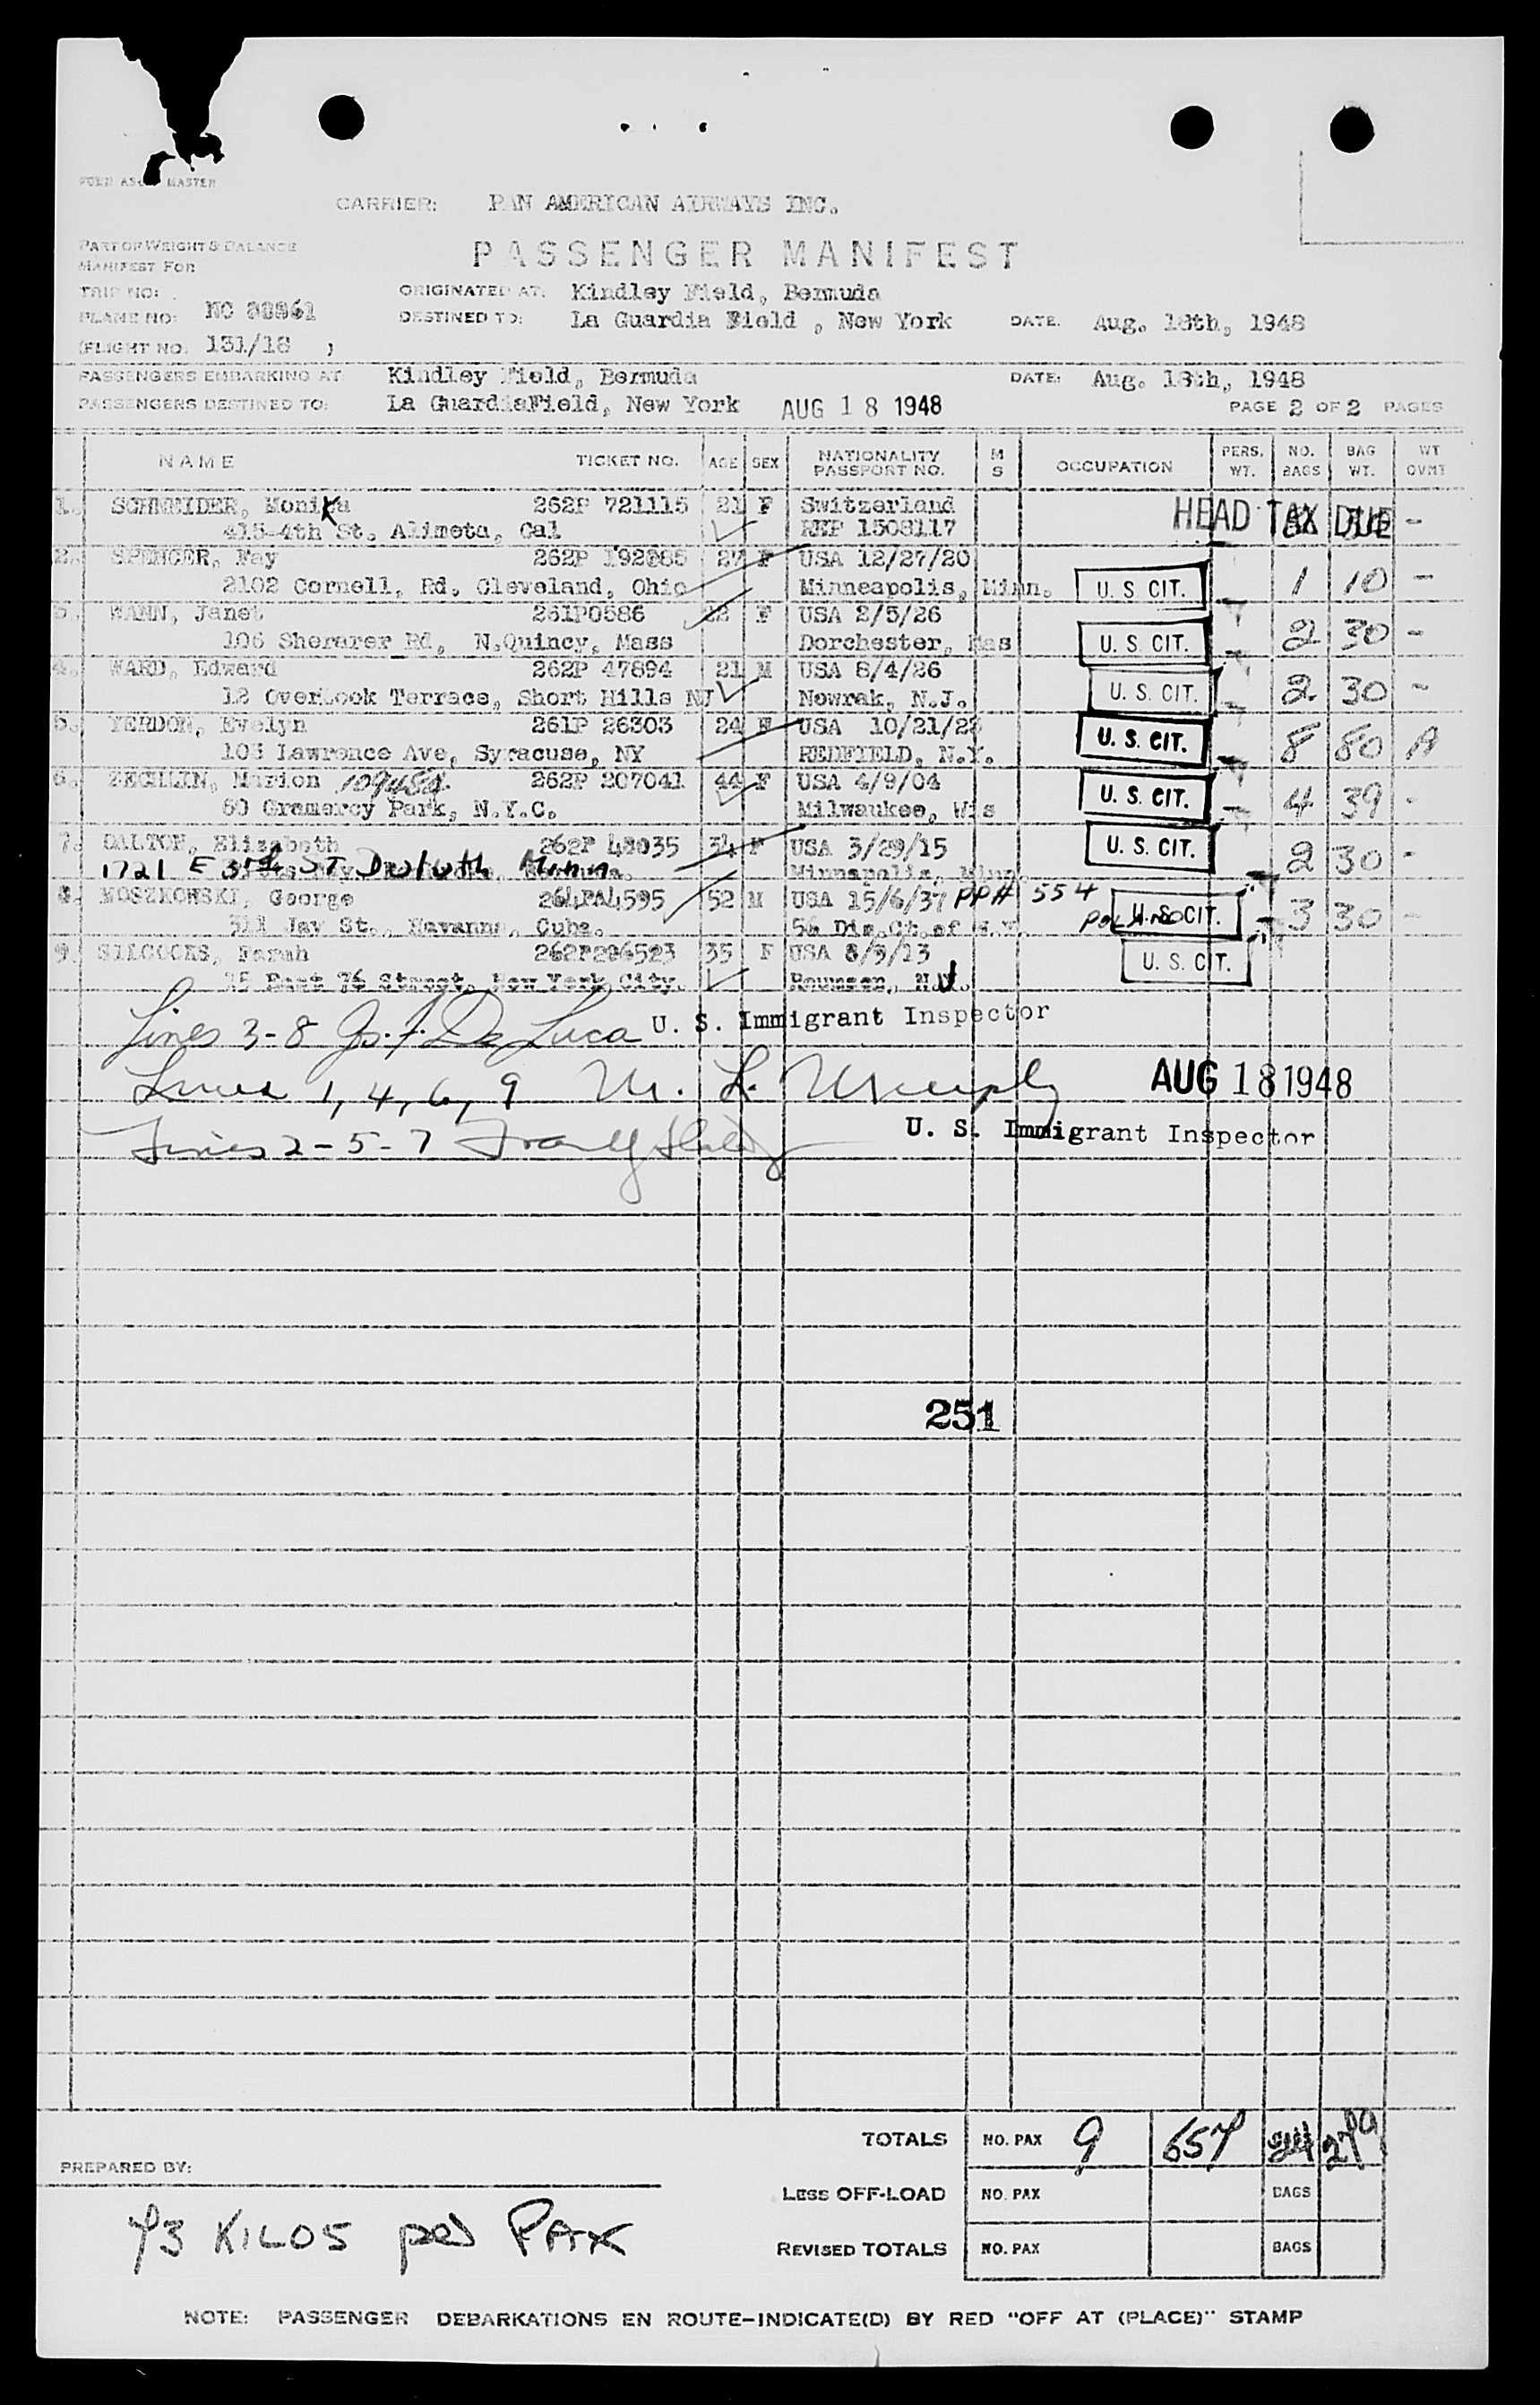 FORM MASTER
CARRIER: PAN AMERICAN AIRWAYS INC.
PART OF WEIGHT & BALANCE
MANIFEST FOR
PASSENGER MANIFEST
TRIP NO: ORIGINATED AT: Kindley Field, Bermuda
PLANE NO: NC DESTINED TO: La Guardia Field , New York DATE: Aug. 18th, 1948
(FLIGHT NO. 131/18 )
PASSENGERS EMBARKING AT Kindley Field, Bermuda DATE: Aug. 18th, 1948
PASSENGERS DESTINED TO: La GuardiaField, New York AUG 18 1948 PAGE 2 OF 2 PAGES
NAME TICKET NO. AGE SEX NATIONALITY PASSPORT NO. M S OCCUPATION PERS. WT. NO. BAGS BAG WT. WT OVMT
1. SCHNEIDER, Monika 262P 721115 21 F Switzerland HEAD TAX DUE -
415-4th St. Alimeta, Cal REP 1508117
2. SPENCER, Fay 262P 27 F USA 12/27/20
2102 Cornell, Rd. Cleveland, Ohio Minneapolis, Minn. U. S. CIT. 1 10 -
3. MANN, Janet 261P0586 22 F USA 2/5/26
106 Rd, N.Quincy, Mass Dorchester, Mas U. S. CIT. 2 30 -
4. WARD, Edward 262P 47894 21 M USA 8/4/26
12 Overlook Terrace, Short Hills NJ Newrak, N.J. U. S. CIT. 2 30 -
5. YERDON, Evelyn 261P 26303 24 F USA 10/21/23
103 Lawrence Ave, Syracuse, NY REDFIELD, N.Y. U. S. CIT. 8 80 A
6. ZECHLIN, Marion 262P 207041 44 F USA 4/9/04
60 Gramercy Park, N.Y.C. Milwaukee, Wis U. S. CIT. 4 39 -
7. DALTON, Elizabeth 262P 48035 34 F USA 3/29/15
1721 E 3rd ST Duluth Minn. Minnapolis, Minn. U. S. CIT. 2 30 -
8. MOSZKOWSKI, George 264PA4595 52 M USA 15/6/37 PP# 554
511 Jay St., Havanna, Cuba. Dis.Ct.of N.Y. POLAND U. S. CIT. 3 30 -
9. SILCOCKS, Farah 262P206523 35 F USA 8/9/13
East 76 Street, New York City. U. S. CIT.
Lines 3-8 Js. F. De Luca U. S. Immigrant Inspector
Lines 1, 4, 6, 9 M. L. Murphy AUG 18 1948
Lines 2-5-7 U. S. Immigrant Inspector
251
TOTALS NO. PAX 9 657 279
PREPARED BY:
LESS OFF-LOAD NO. PAX BAGS
73 KILOS per PAX
REVISED TOTALS NO. PAX BAGS
NOTE: PASSENGER DEBARKATIONS EN ROUTE-INDICATE(D) BY RED "OFF AT (PLACE)" STAMP